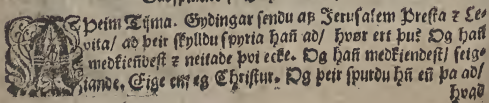 A Þeim Tijma. Gydingar sendu aff Jerusalem Presta ꝛ Le-
vita/ ad þeir skylldu spyria hañ ad/ hvør ert þu? Og hañ
medkiendest ꝛ neitade þvi ecke. Og hañ medkiendest/ seig-
iande. Eige em eg Christur. Og þeir spurdu hñ eñ þa ad/
hvad